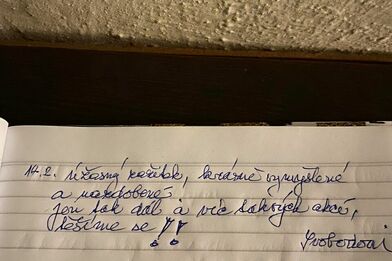 14.2. Úžasný zážitek, krásně vymyšlené
a nazdobené.
Jen tak dál a víc takových akcí,
těšíme se !!
Svobodovi